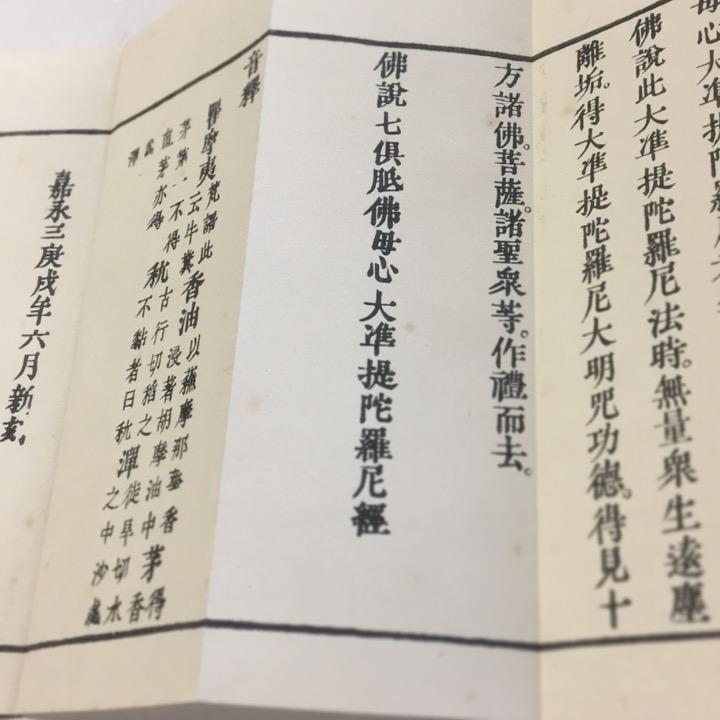 母心大準提陀羅尼
佛說此大準提陀羅尼法時。無量衆生遠塵
離垢。得大準提陀羅尼大明咒功德。得見十
方諸佛。菩薩。諸聖衆等。作禮而去。
佛說七俱胝佛母心大準提陀羅尼經
音釋
瞿摩夷 梵語此云牛糞 香油 以蘇摩那華香浸著胡摩油中 茅 得香
茅第一不得直茅亦得 秫 古行切稻之不黏者曰秫 潬 徒旱切水之中沙處
爲潬
嘉永三庚戌年六月新刻